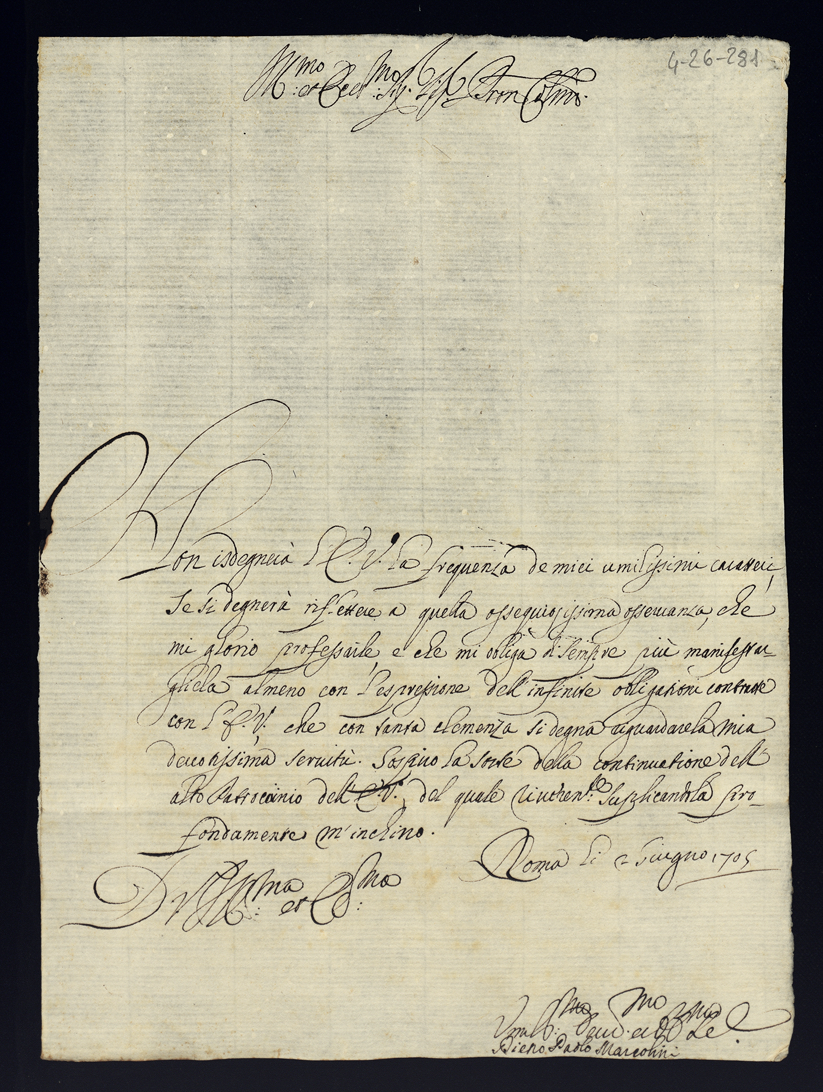 4-26-281
Ill.mo et Ecc.mo Sig.r Sig.r Pron Col.mo
Non isdegnerà l'E. V. la frequenza de miei umilissimi caratteri,
se si degnerà riflettere a quella ossequiosissima osservanza, che
mi glorio professarle, e che mi obliga di sempre più manifestar-
gliela almeno con l'espressione dell'infinite obligationi contratte
con l'E. V. che con tanta clemenza si degna riguardare la mia
devotissima servitù. Sospiro la sorte della continuatione dell'
alto Patrocinio dell'E. V., del quale riveren.te suplicandola pro-
fondamente m'inchino.
Roma li 2 Giugno 1705
Di V. Ill.ma et Ecc.ma
Umil.mo Dev.mo et Obl.mo
Pietro Paolo Marcolini